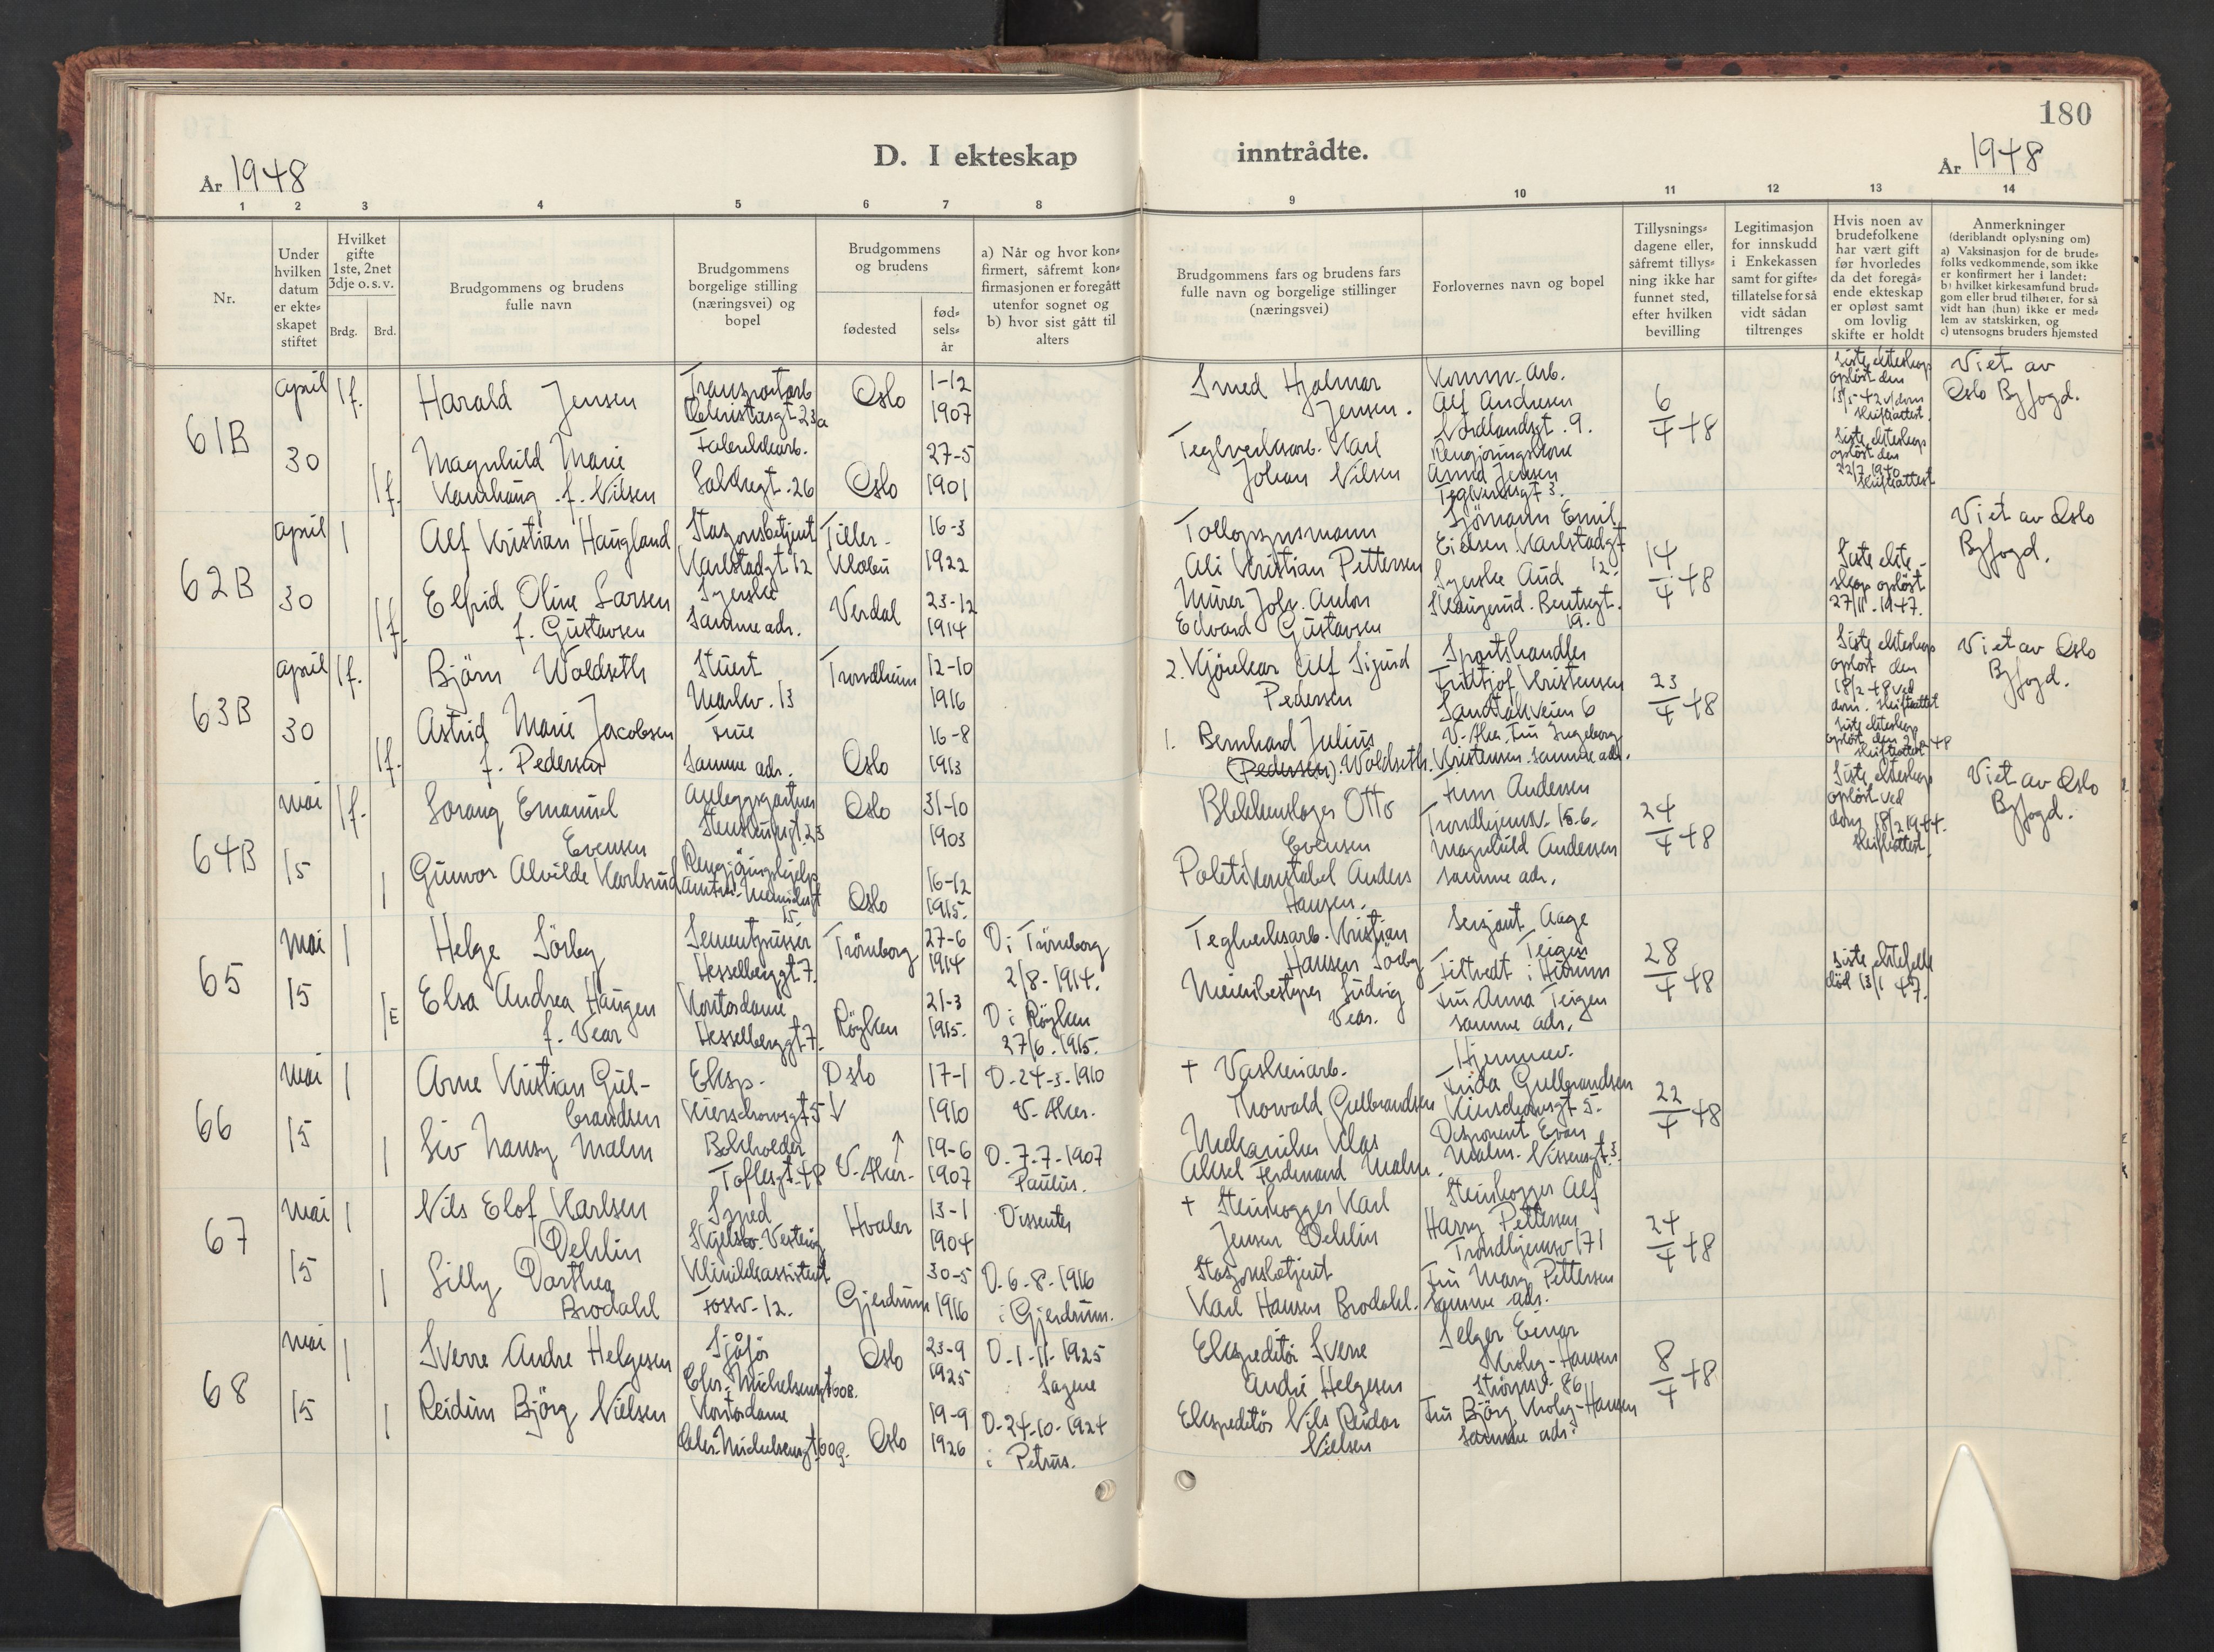 180
D. I ekteskap inntrådte.
År 1948
År 1948
1 2 3 4 5 6 7 8 9 10 11 12 13 14
Nr.
Under hvilken datum er ekte- skapet stiftet
Hvilket gifte 1ste, 2net 3dje o. s. v.
Brdg. Brd.
Brudgommens og brudens fulle navn
Brudgommens borgelige stilling (næringsvei) og bopel
Brudgommens og brudens
fødested
fød- sels- år
a) Når og hvor kon- firmert, såfremt kon- firmasjonen er foregått utenfor sognet og b) hvor sist gått til alters
Brudgommens fars og brudens fars fulle navn og borgelige stillinger (næringsvei)
Forlovernes navn og bopel
Tillysnings- dagene eller, såfremt tillys- ning ikke har funnet sted, efter hvilken bevilling
Legitimasjon for innskudd i Enkekassen samt for gifte- tillatelse for så vidt sådan tiltrenges
Hvis noen av brudefolkene har vært gift før hvorledes da det foregå- ende ekteskap er opløst samt om lovlig skifte er holdt
Anmerkninger (deriblandt oplysning om) a) Vaksinasjon for de brude- folks vedkommende, som ikke er konfirmert her i landet: b) hvilket kirkesamfund brud- gom eller brud tilhører, for så vidt han (hun) ikke er med- lem av statskirken, og c) utensogns bruders hjemsted
61B
april 30
1f.
Harald Jensen
Transportarb.
Oslo
1-12 1907
Smed Hjalmar
Jensen.
Komm. arb.
Alf Andresen
Nordlandsgt. 9.
6/4 48
Siste ekteskap
opløst den
13/5-42 v/dom
skifteattest
Viet av
Oslo Byfogd.
1f.
Magnhild Marie
f. Nilsen
Fabrikkarb.
26
Oslo
27-5 1901
Teglverksarb. Karl
Johan Nilsen
Rengjøringskone
Anna Jensen
Teglverksgt 3.
Siste ekteskap
opløst den
22/7 1940
skifteattest
62B
april 30
1
Alf Kristian Haugland
Stasjonsbetjent
Karlstadgt. 12
Tiller-
Klæbu
16-3 1922
Tolloppsynsmann
Ali Kristian Pettersen
Sjömann Emil
Eielsen Karlstadgt
12.
14/4 48
Siste ekte-
skap opløst
27/11. 1947.
Viet av Oslo
Byfogd.
1f.
Elfrid Oline Larsen
f. Gustavsen
Syerske
Samme adr.
Verdal
23-12 1914
Murer Joh. Anton
Edvard Gustavsen
Syerske Aud
Skaugerud. Bentsegt.
19.
63B
april 30
1f.
Björn Woldseth
Stuert
Markv. 13
Trondheim
12-10 1916
2. Kjörekar Alf Sigurd
Pedersen
Sportshandler
Fridtjof Kristensen
Sandtakveien 6
23/4 48
Siste ekteskap
opløst den
18/2 48 ved
dom. skifteattest
Viet av Oslo
Byfogd.
1f.
Astrid Marie Jacobsen
f. Pedersen
Frue
Samme adr.
Oslo
16-8 1913
1. Bernhard Julius
(Pedersen). Woldseth.
V. Aker. Fru Ingeborg
Kristensen. samme adr.
Siste ekteskap
skifteattest
64B
mai 15
1f.
Sorang Emanuel
Evensen
Anleggsgartner
Oslo
31-10 1903
Blikkenslager Otto
Evensen
Finn Andersen
Trondhjemsv. 15.b.
24/4 48
Siste ekteskap
opløst ved
dom 18/2 1944.
skifteattest.
Viet av Oslo
Byfogd.
1
Gunvor Alvilde Karlsrud
Rengjöringshjelp
15
Oslo
16-12 1915.
Politikonstabel Anders
Hansen.
Magnhild Andersen
samme adr.
65
mai 15
1
Helge Sörby
Sementpusser
Hesselberggt 7.
Trömborg
27-6 1914
D i Trömborg
2/8-1914.
Teglverksarb. Kristian
Hansen Sörby
Sersjant Aage
Teigen
Filtvedt i Hurum
28/4 48
1E
Elsa Andrea Haugen
f. Vear
Kontordame
Hesselberggt. 7.
Röyken
21-3 1915.
D i Röyken
27/6. 1915.
Meieribestyrer Ludvig
Vear.
Fru Anna Teigen
samme adr.
Siste ektefelle
död 13/1 47.
66
mai 15
1
Arne Kristian Gul-
brandsen
Eksp.
Kierschowsgt 5
Oslo
17-1 1910
D-24-3-1910
V. Aker.
† Vaskeriarb.
Thorvald Gulbrandsen
Hjemmev.
Frida Gulbrandsen
Kierschowsgt 5.
22/4 48
1
Liv Nansy Malm
Bokholder
Toftesgt. 48
V. Aker.
19-6 1907
D-7-7-1907
Paulus.
Mekaniker Klas
Aksel Ferdinand Malm.
Disponent Evan
Malm. Nissensgt. 3.
67
mai 15
1
Nils Elof Karlsen
Dehlin
Smed
Hvaler
13-1 1904
Dissenter
† Steinhogger Karl
Jensen Dehlin
Steinhogger Alf
Harry Pettersen
Trondhjemsv 171
24/4 48
1
Lilly Dorthea
Brodahl
Klinikkassistent
Fossv. 12.
Gjerdrum
30-5 1916
D-6-8-1916
i Gjerdrum.
Stasjonsbetjent
Karl Hansen Brodahl.
Fru Mary Pettersen
samme adr.
68
mai 15
1
Sverre Andre Helgesen
Sjåfør
Chr. Michelsensgt 60B.
Oslo
23-9 1925
D-1-11-1925
Sagene
Ekspeditör Sverre
André Helgesen
Selger Einar
Krohg-Hansen
Strömsv. 86
8/4 48
1
Reidun Björg Nielsen
Kontordame
Chr. Michelsensgt 60g.
Oslo
19-9 1926
D-24-10-1924
i Petrus.
Ekspeditör Nils Reidar
Nielsen
Fru Björg Krohg-Hansen
samme adr.